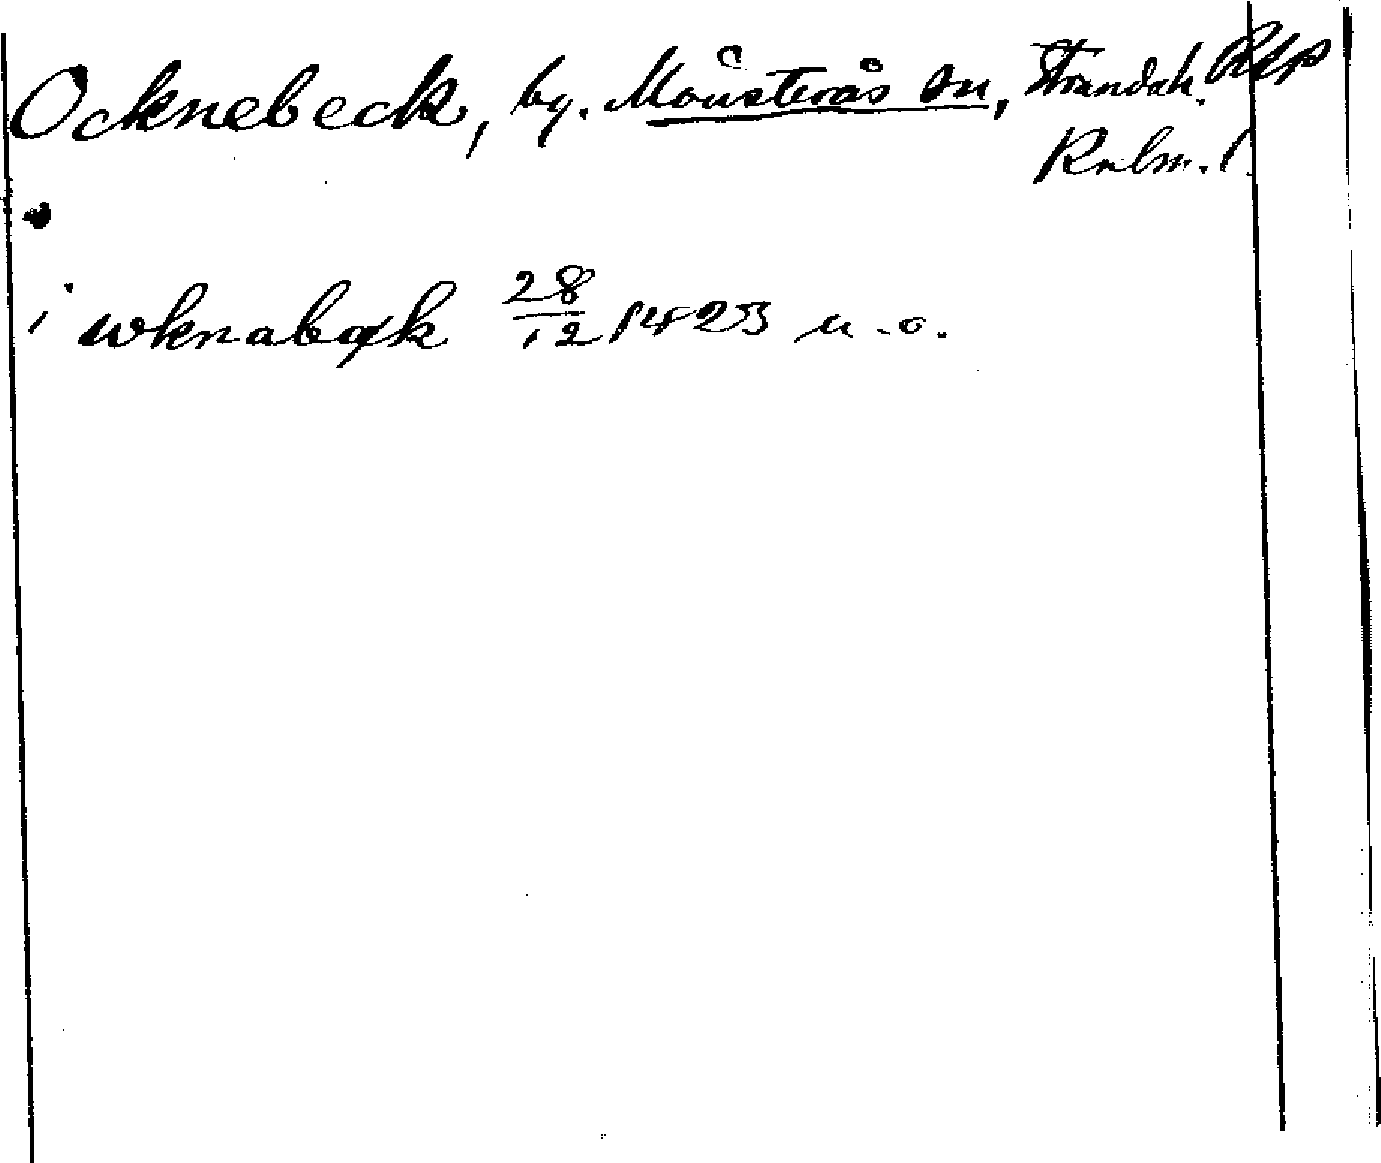 Ocknebeck, by. Mönsterås sn, Strandah. RAp
Kalm. l.
i wknabæk 28/12 1423 u. o.